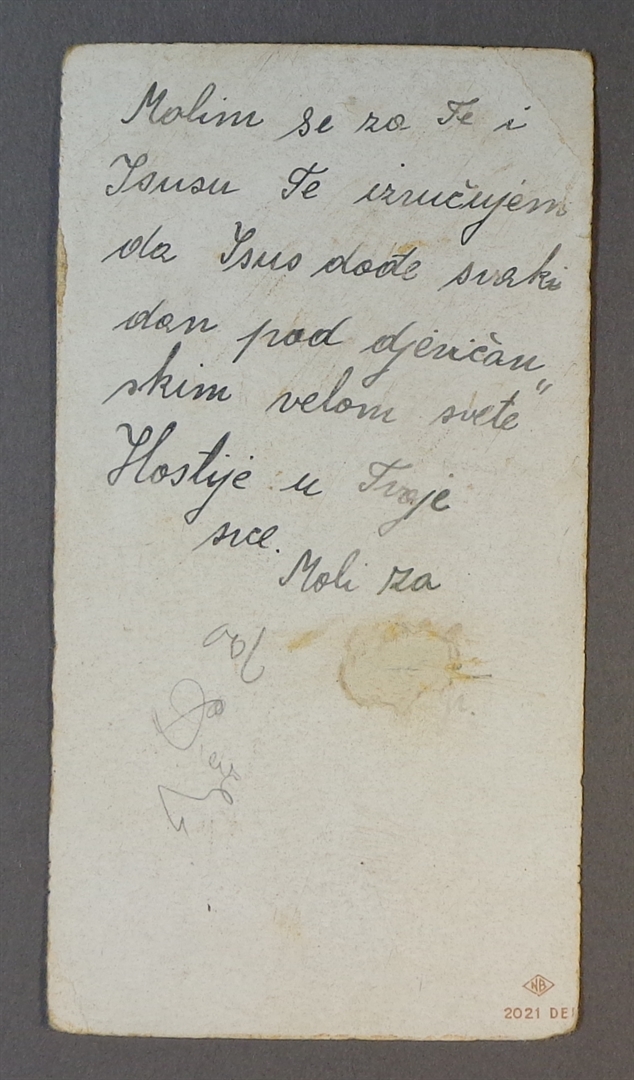 Molim se za Te i
Isusu Te izručujem
da Isus dođe svaki
dan pod djevičan„
skim velom svete"
Hostije u Tvoje
srce.
Moli za
NB
2021 DE